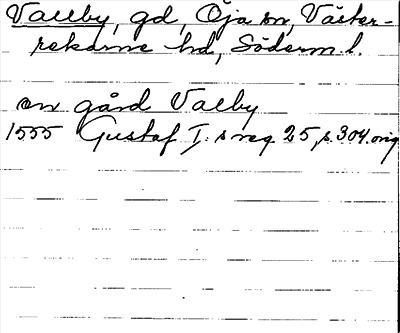 Valby, gd, Öja sn, Väster-
rekarne hd, Söderm.l.
en gård Valby
1555 Gustaf I:s reg 25, s. 304. orig